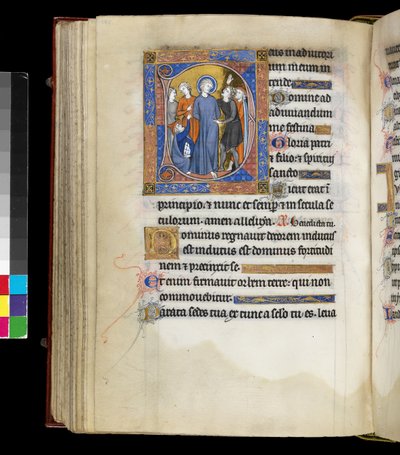 eus in adiutori
um meum in
tende Domine ad
adiuuandum
me festina
Gloria patri
& filio & spiritui
sancto
Sicut erat i
principio & nunc et semper in secula se
culorum amen alleluya. A. Benedicta tu
Dominus regnauit decorem indutus
est indutus est dominus fortitudi
nem & precinxit se
Et enim firmauit orbem terre qui non
commouebitur
Parata sedes tua ex tunc a seculo tu es leua